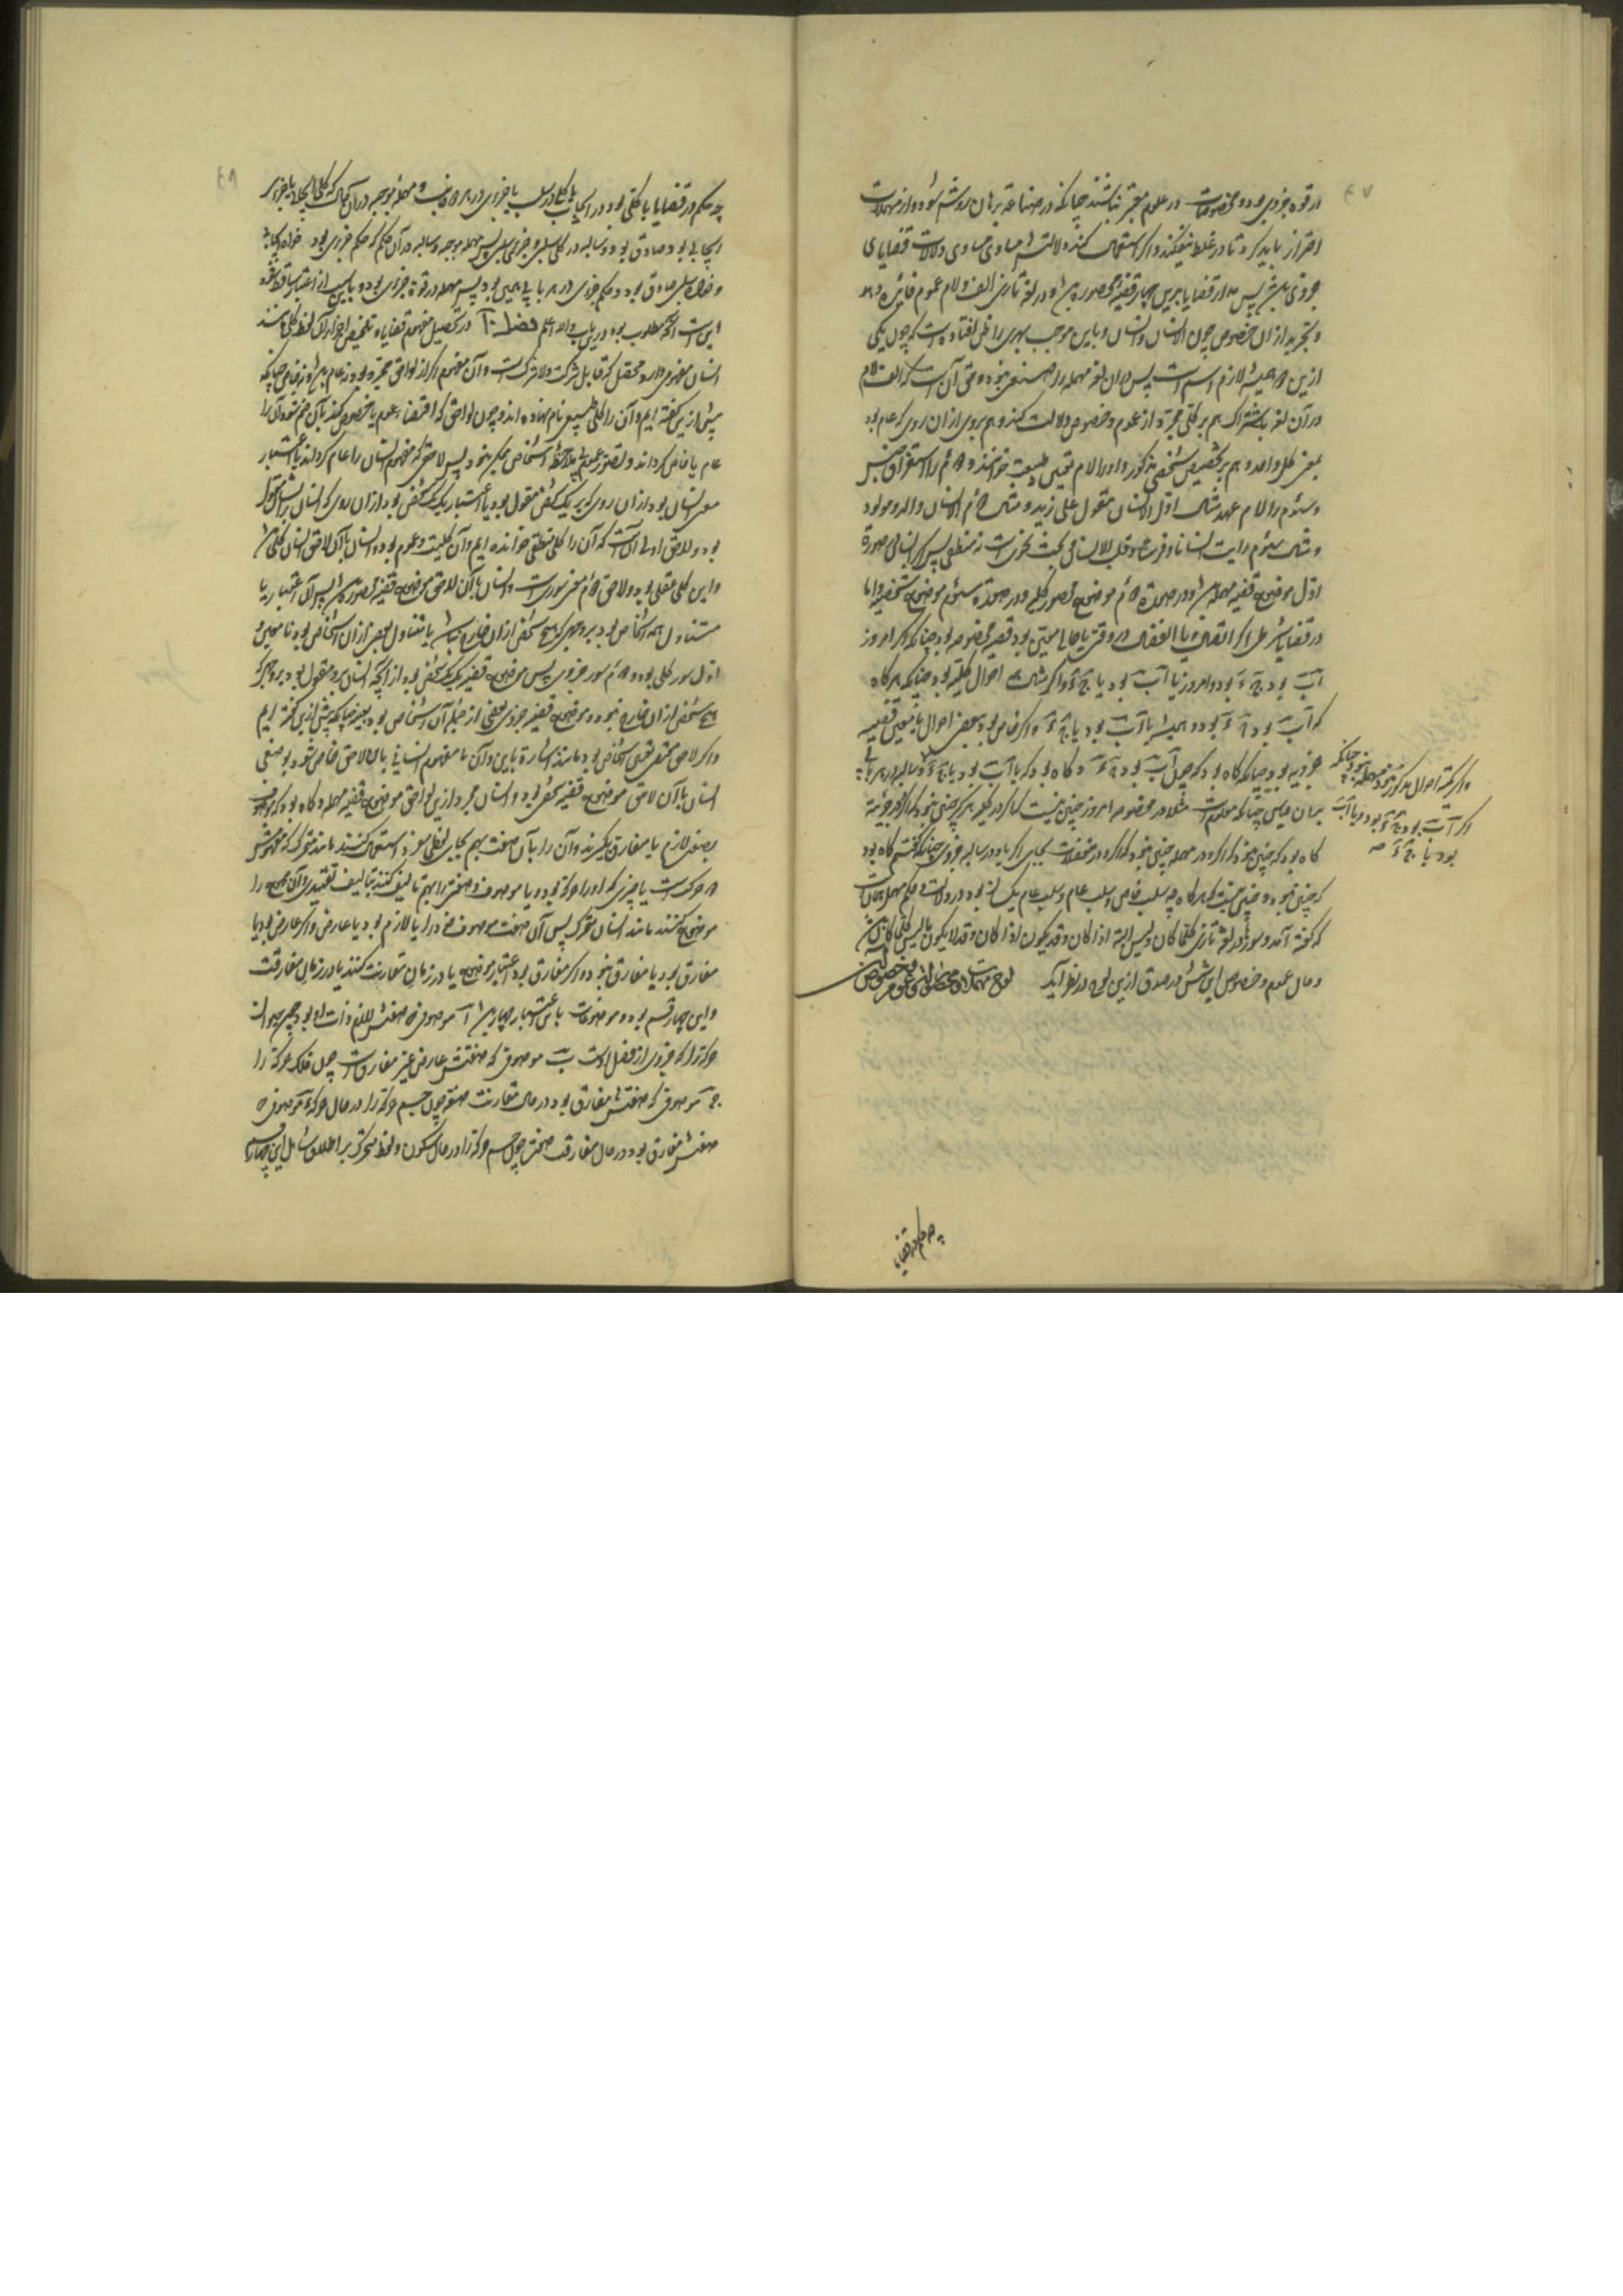 در قوه جزوی بود و مخصوصات در علوم معتبر نباشند چنانکه در صناعة برهان روشن شود و از مهملات
احتراز باید کرد تا در غلط نیفکند و اگر استعمال کنند دلالتش مساوی دلالات قضایای
جزوی باشد پس مدار قضایا برین چهار قضیه محصوره باشد و در لغة تازی الف و لام عموم فائده دهد
و تجرید از ان خصوص چون الانسان و انسان و باین موجب بهری را ظن افتاده است که چون یکی
ازین دو همیشه لازم اسم است پس در ان لغة مهمله را صنفی نبوده و حق آن است که الف و لام
در آن لغة باشتراک هم بر کلی مجرد از عموم و خصوص دلالت کند و هم بروی از ان روی که عام بود
بمعنی کل واحد و هم بر تخصیص شخصی مذکور و اول را لام تعیین طبیعت خوانند و دوم را استغراق جنس
و سئوم را لام عهد مثال اول الانسان مقول علی زید و مثال دوم الانسان والد و مولود
و مثال سئوم رأیت انسانا و فرسا و قلت للانسان این بحث نحوی است نه منطقی پس الانسان در صورة
اول موضوع قضیه مهمله باشد و در صورة دوم موضوع محصوره کلیه و در صورة سئوم موضوع شخصیه و اما
در قضایای شرطی اگر اتصال یا انفصال در وقتی یا حالی معین بود قضیه مخصوصه بود چنانکه اگر امروز
آب بود ج د بود و امروز یا آب بود یا ج د و اگر شامل همه احوال کلیه بود چنانکه هر گاه
که آب بود ج د بود و همیشه یا آب بود یا ج د و اگر خاص بود ببعض احوال یا تعیین قضیه
جزویه بود چنانکه گاه بود که چون آب بود ج د و گاه بود که یا آب بود یا ج د و سالبه در هر بابی
بر ان قیاس چنانکه معلوم است مثلا در مخصوصه امروز چنین نیست که اگر در کلیه هرگز چنین نبود که اگر و در جزئیه
گاه بود که چنین نبود که اگر و در مهمله چنین نبود که اگر و در منفصلات بجای اگر یا و در سالبه جزوی چنانکه گفتیم گاه بود
که چنین نبود و چنین نیست که هر گاه چه سلب خاص و سلب عام یکسان بود در دلالت و حکم مهمل همان است
که گفته آمد و سور در لغة تازی کلما کان و لیس البتة اذا کان و قد یکون اذا کان و قد لا یکون یا لیس کلما کان باشد
و حال عموم و خصوص این شش در صدق ازین لوح در نظر آید
و اگر بقیه احوال مذکور نبود مهمله بود چنانکه
اگر آب بود ج د بود و یا آب
بود یا ج د صح
چه حکم در قضایا
چه حکم در قضایا یا کلی بود در ایجاب یا کلی در سلب یا جزوی در هر دو جانب و مهمله موجبه در ان حال که کلی ایجابی یا جزوی
ایجابی بود صادق بود و سالبه در کلی سلبی و جزوی سلبی پس مهمله موجبه و سالبه در آن حکم که حکم جزوی بود خواه ایجابی
و خواه سلبی صادق بود و حکم جزوی در هر بابی همین بود پس مهمله در قوة جزوی بود و باین سبب از اعتبار ساقط شود
این است آنچه مطلوب بود درین باب والله اعلم فصل در تحصیل مفهوم قضایا و تلخیص اجزاء آن لفظ کلی مانند
انسان مفهومی دارد محصل که قابل شرکت و لا شرکت است و آن مفهوم اگر از لواحق مجرد بود نه عام باشد و نه خاص چنانکه
پیش ازین گفته ایم و آن را کلی طبیعی نام نهاده اند و چون لواحق که اقتضاء عموم یا خصوص کند با آن ضم شود آن را
عام یا خاص گرداند و تصور عموم بی ملاحظه اشخاص ممکن نبود پس لاحق که مفهوم انسان را عام گرداند یا اعتبار
معنی انسان بود از ان روی که بر یک یک شخص مقول بود یا اعتبار یک یک شخص بود از ان روی که انسان بر ایشان مقول
بود و لاحق اول آن است که آن را کلی منطقی خوانده ایم و آن کلیت و عموم بود و انسان با آن لاحق انسان کلی باشد
و این کلی عقلی بود و لاحق دوم معنی سور است و انسان با آن لاحق موضوع قضیه محصوره باشد پس آن اعتبار یا
متناول همه اشخاص بود بر وجهی که هیچ شخص از ان خارج نباشد یا متناول بعضی از ان اشخاص بود نا معین و
اول سور کلی بود و دوم سور جزوی پس موضوع قضیه یک یک شخص بود از آنچه انسان برو مقول بود بر وجهی که
هیچ شخص از ان خارج نبود و موضوع قضیه جزوی بعضی از جمله آن اشخاص بود بعینه چنانکه پیش ازین گفته ایم
و اگر لاحق مقتضی تعیین شخص بود مانند اشارة باین و آن تا مفهوم انسانی بان لاحق خاص شود بوصفی
انسان با آن لاحق موضوع قضیه شخصی بود و انسان مجرد ازین لواحق موضوع قضیه مهمله و گاه بود که موصوف
بصفتی لازم یا مفارق بگیرند و آن را با آن صفت بهم بجای لفظی مفرد استعمال کنند مانند متحرک که مفهومش
ذو حرکت است یا چیزی که او را حرکة بود و یا موصوف و صفت را بهم تالیف کنند بتالیف تقییدی و آن مجموع را
موضوع کنند مانند انسان متحرک پس آن صفت موصوف خود را یا لازم بود یا عارض و اگر عارض بود یا
مفارق بود یا مفارق نبود و اگر مفارق بود اعتبار موضوع یا در زمان مقارنت کنند یا در زمان مفارقت
و این چهار قسم بود و موضوعات باین اعتبار چهار باشد آ موصوفی که صفتش لازم ذات او بود چون حیوان
حرکة را که جزوی از فصل اوست ب موصوفی که صفتش عارض غیر مفارق است چون فلک حرکة را
ج موصوفی که صفتش مفارق بود در حال مقارنت صفة چون جسم حرکة را در حال حرکة د موصوفی که
صفتش مفارق بود در حال مفارقت صفت چون جسم حرکة را در حال سکون و لفظ متحرک بر اطلاق شامل این چهار قسم